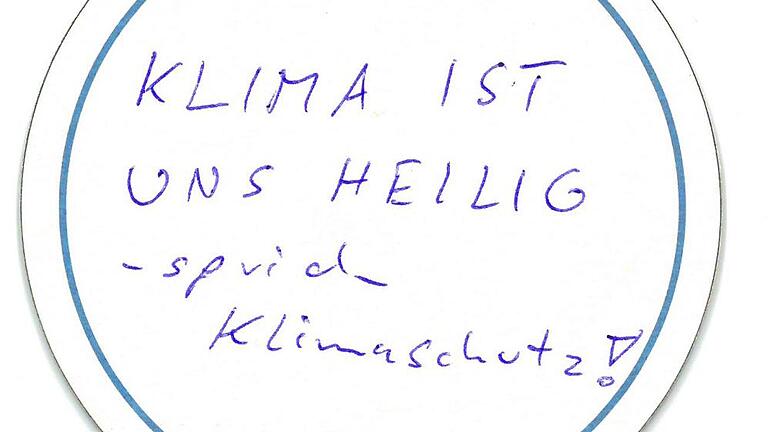 KLIMA IST
UNS HEILIG
- sprich
Klimaschutz!